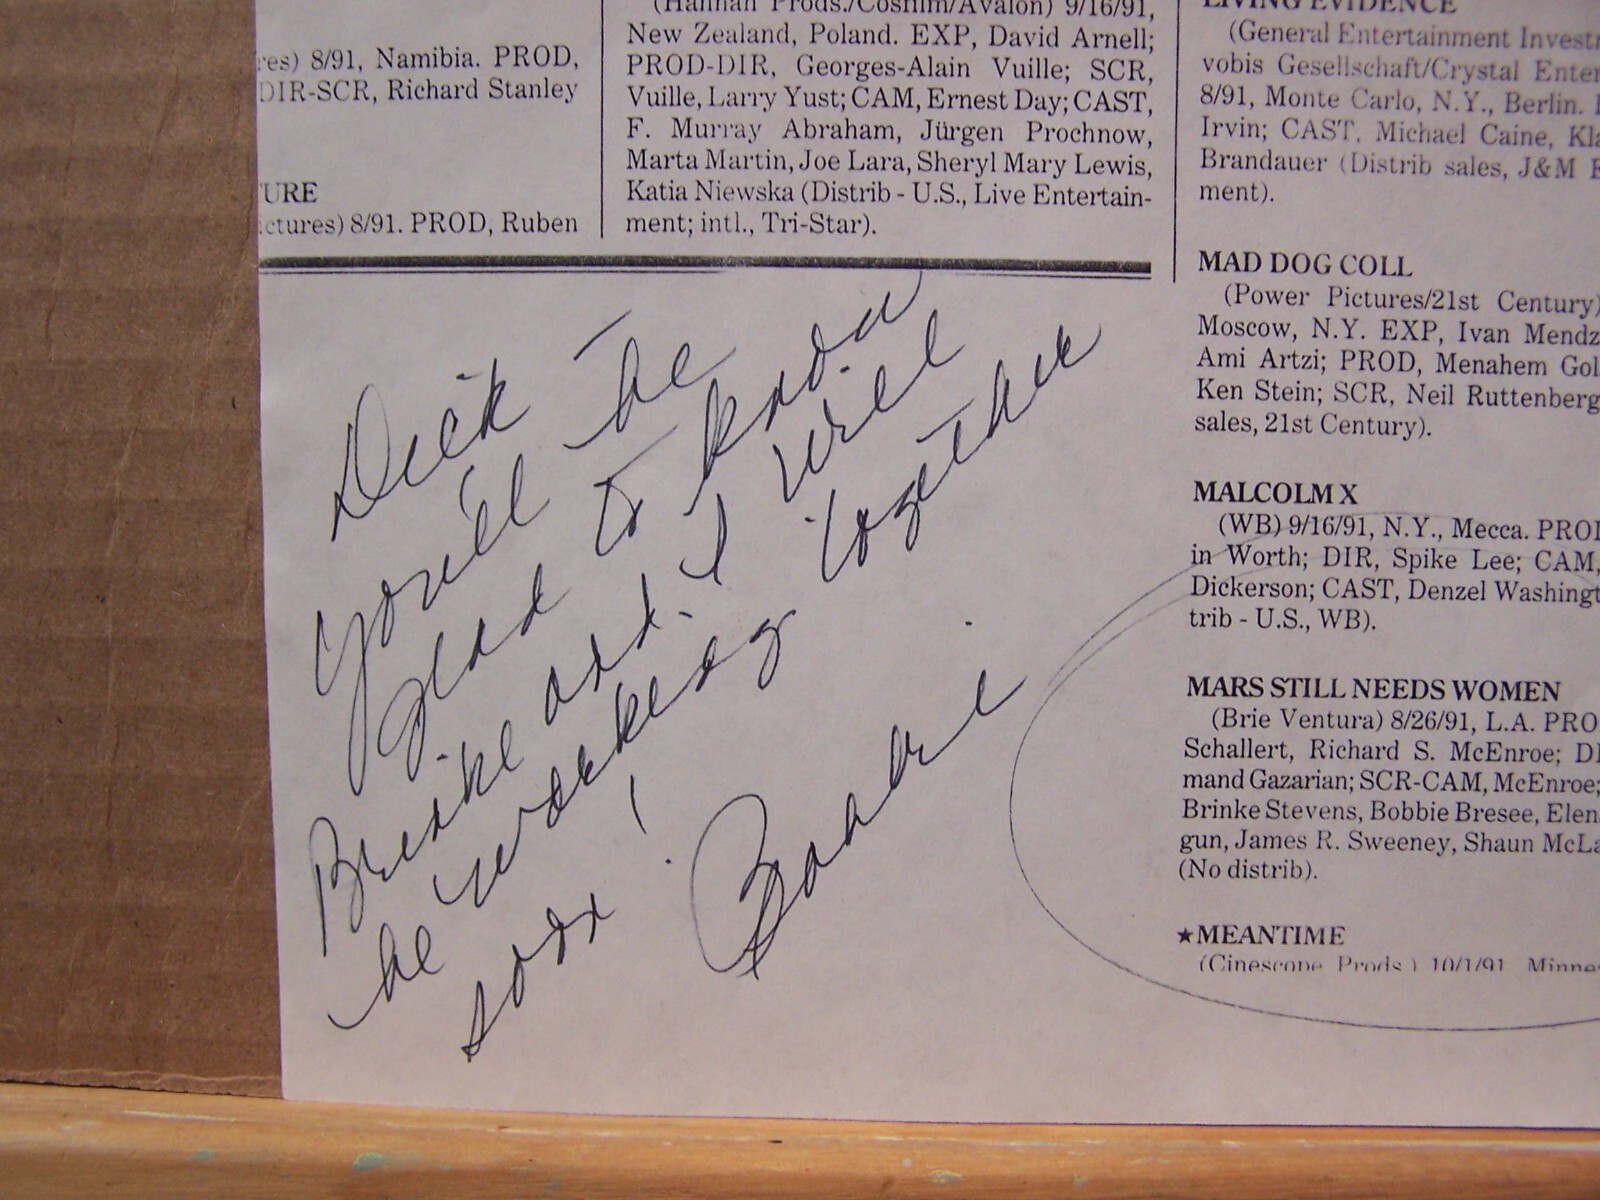 res) 8/91, Namibia. PROD,
DIR-SCR, Richard Stanley
URE
ctures) 8/91. PROD, Ruben
(Hannah Prods./Coshim/Avalon) 9/16/91,
New Zealand, Poland. EXP, David Arnell;
PROD-DIR, Georges-Alain Vuille; SCR,
Vuille, Larry Yust; CAM, Ernest Day; CAST,
F. Murray Abraham, Jürgen Prochnow,
Marta Martin, Joe Lara, Sheryl Mary Lewis,
Katia Niewska (Distrib - U.S., Live Entertain-
ment; intl., Tri-Star).
Dick
you'll be
glad to know
Brinke and I will
be working together
soon!
Bobbie
LIVING EVIDENCE
(General Entertainment Invest
vobis Gesellschaft/Crystal Enter
8/91, Monte Carlo, N.Y., Berlin.
Irvin; CAST, Michael Caine, Kla
Brandauer (Distrib sales, J&M E
ment).
MAD DOG COLL
(Power Pictures/21st Century)
Moscow, N.Y. EXP, Ivan Mendz
Ami Artzi; PROD, Menahem Gol
Ken Stein; SCR, Neil Ruttenberg
sales, 21st Century).
MALCOLM X
(WB) 9/16/91, N.Y., Mecca. PROD
in Worth; DIR, Spike Lee; CAM,
Dickerson; CAST, Denzel Washingt
trib - U.S., WB).
MARS STILL NEEDS WOMEN
(Brie Ventura) 8/26/91, L.A. PRO
Schallert, Richard S. McEnroe; DI
mand Gazarian; SCR-CAM, McEnroe;
Brinke Stevens, Bobbie Bresee, Elen
gun, James R. Sweeney, Shaun McLa
(No distrib).
★MEANTIME
(Cinescope Prods.) 10/1/91, Minne